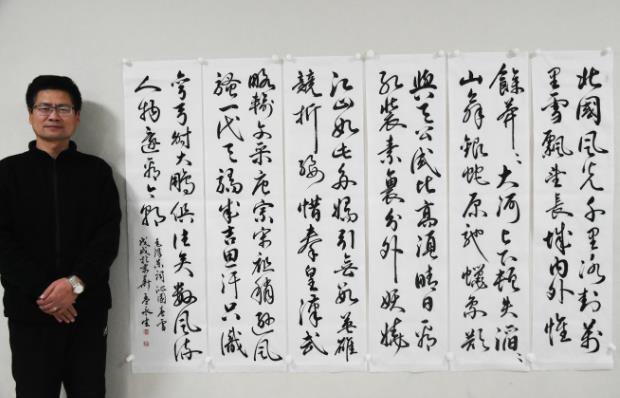 北國風光千里冰封萬
里雪飄望長城内外惟
餘莽、大河上下頓失滔、
山舞銀蛇原馳蠟象欲
與天公試比高須晴日看
紅裝素裹分外妖嬈
江山如此多嬌引無數英雄
競折腰惜秦皇漢武
略輸文采唐宗宋祖稍遜風
騷一代天驕成吉思汗只識
彎弓射大鵰俱往矣數風流
人物還看今朝
毛澤東詞沁園春雪
戊戌於永生